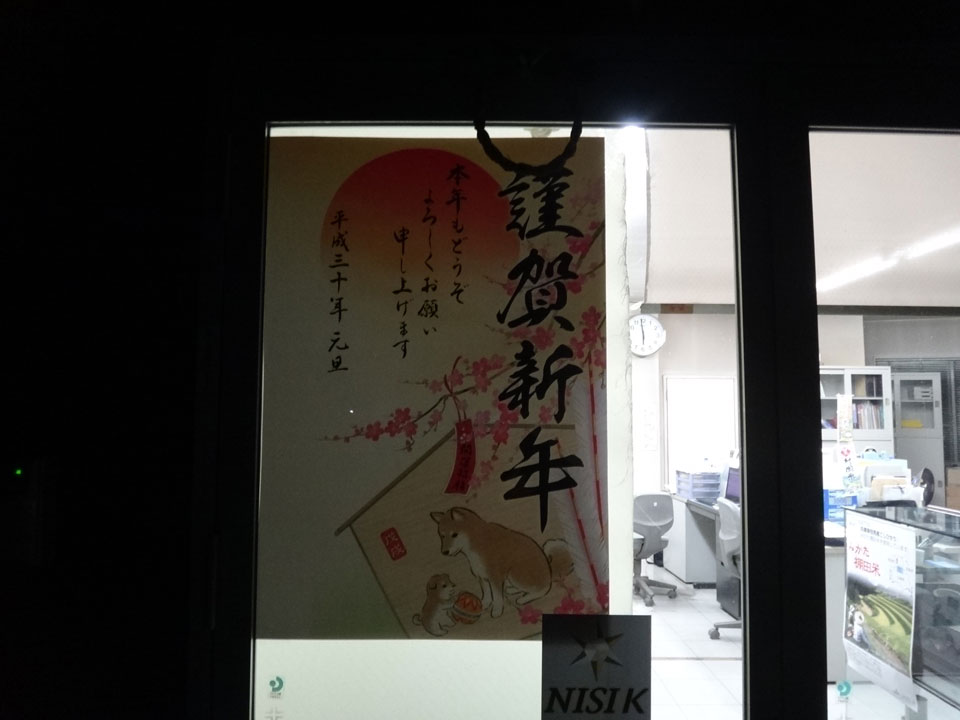 謹賀新年
本年もどうぞ
よろしくお願い
申し上げます
平成三十年 元旦
戊戌
NISI K
棚田米